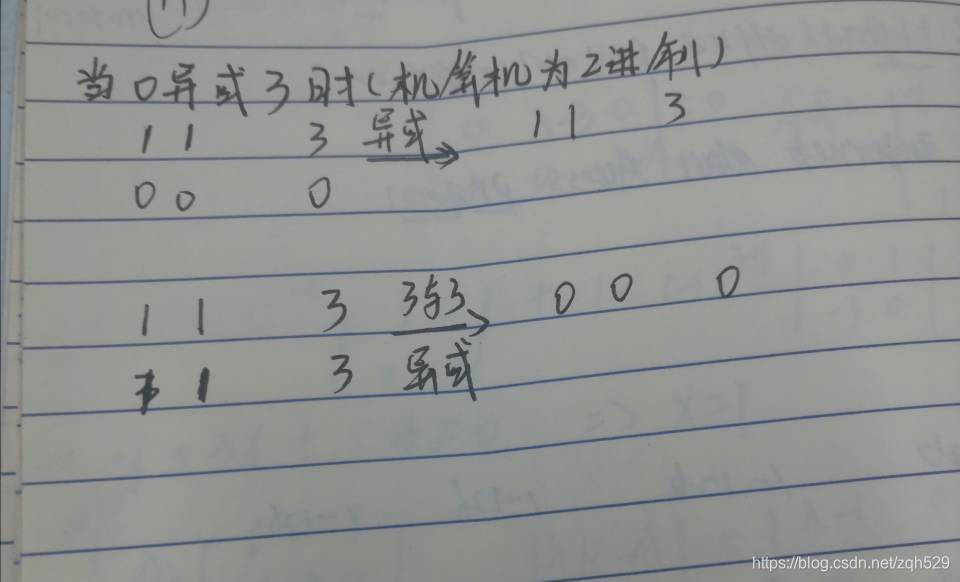 当0异或3时(机算机为2进制)
11 3 异或 11 3
00 0
11 3 3与3 00 0
11 3 异或
https://blog.csdn.net/zqh529